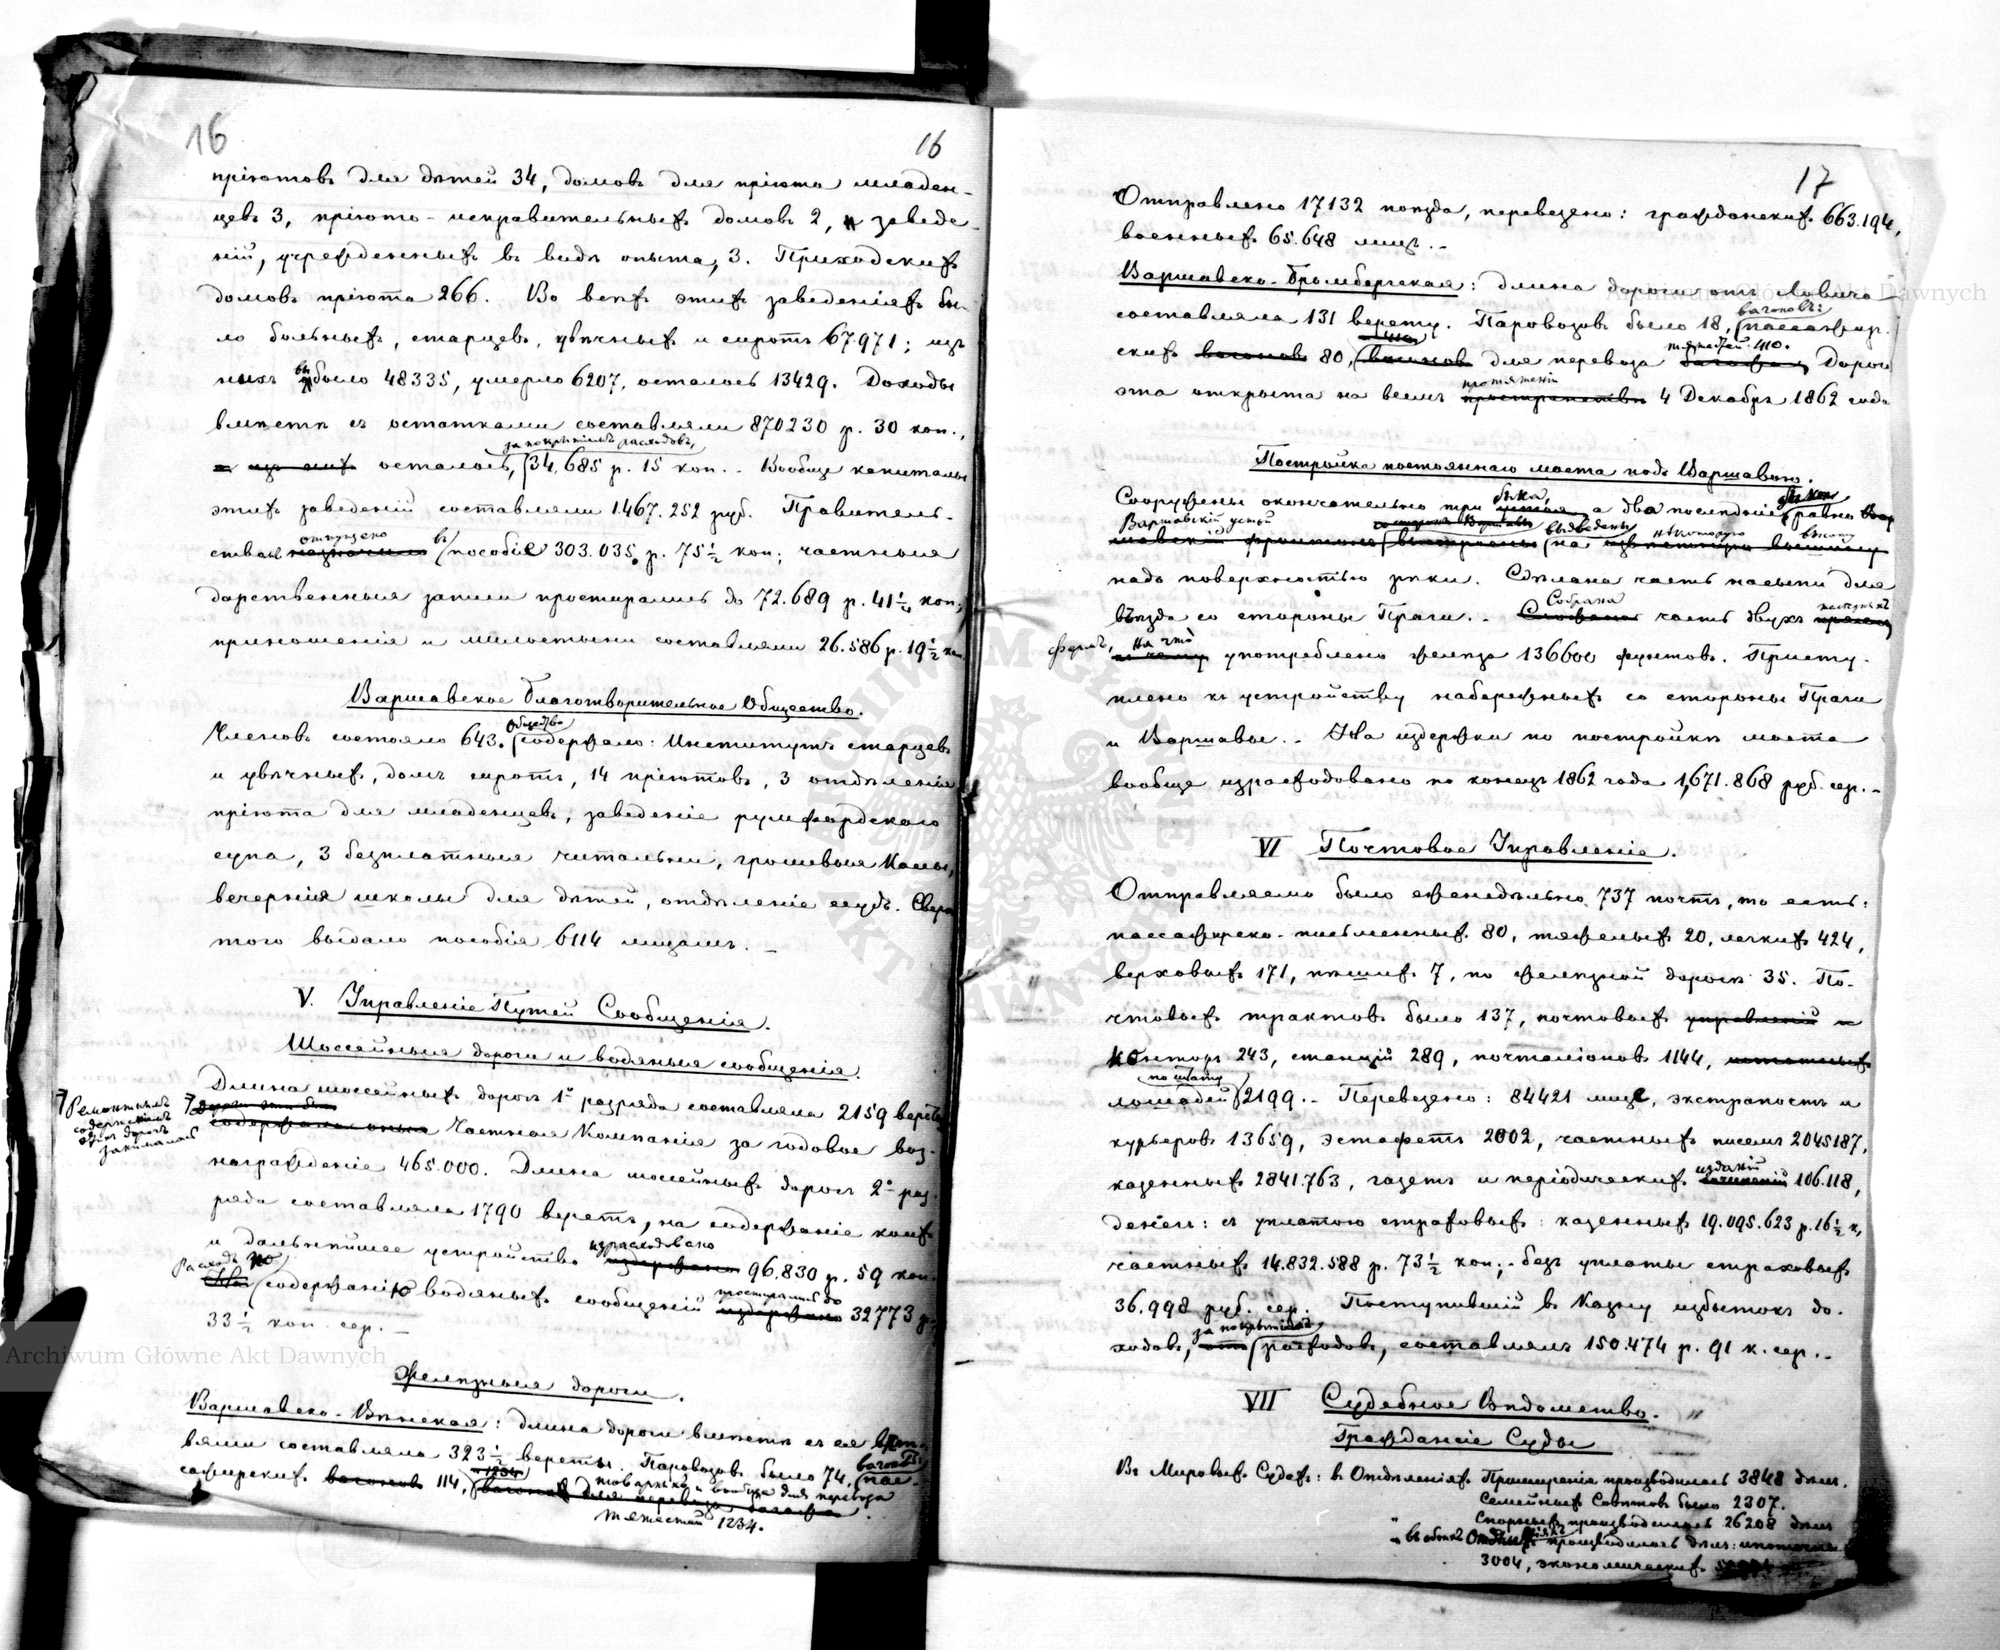 16
16
пріютовъ для дѣтей 34, домовъ для пріюта младен-
цевъ 3, пріюто-исправительныхъ домовъ 2, и заведе-
ній, учрежденныхъ въ видѣ опыта, 3. Приходскихъ
домовъ пріюта 266. Во всѣхъ этихъ заведеніяхъ бы-
ло больныхъ, старцевъ, увѣчныхъ и сиротъ 67.971; изъ
нихъ выбыло 48335, умерло 6207, осталось 13429. Доходы
вмѣстѣ съ остатками составляли 870230 р. 30 коп.,
за покрытіемъ расходовъ,
изъ нихъ осталось, 34,685 р. 15 коп. - Вообще капиталы
этихъ заведеній составляли 1.467.252 руб. Правитель-
отпущено въ
ствомъ назначено пособіе 303.035 р. 75½ коп; частныя
дарственныя записи простирались до 72.689 р. 41¼ коп;
приношенія и милостыни составляли 26.586 р. 19½ коп.
Варшавское Благотворительное Общество.
Общество
Членовъ состояло 643. содержало: Институтъ старцевъ
и увѣчныхъ, домъ сиротъ, 14 пріютовъ, 3 отдѣленія
пріюта для младенцевъ, заведеніе румфордскаго
супа, 3 безплатныя читальни, грошевыя кассы,
вечернія школы для дѣтей, отдѣленіе ссудъ. Сверхъ
того выдало пособія 6114 лицамъ. -
V. Управленіе Путей Сообщенія.
Шоссейныя дороги и водяныя сообщенія.
Длина шоссейныхъ дорогъ 1го разряда составляла 2159 верстъ
Ремонтнымъ
содержаніемъ
этихъ дорогъ
занималась
содержаніемъ оныхъ Частная Компанія за годовое воз-
награжденіе 465.000. Длина шоссейныхъ дорогъ 2го раз-
ряда составляла 1790 верстъ, на содержаніе коихъ
израсходовано
и дальнѣйшее устройство издержано 96.830 р. 59 коп.
Расходъ по простирался до
На содержанію водяныхъ сообщеній издержано 32773 р.
33½ коп. сер. -
Желѣзныя дороги.
Варшавско-Вѣнская: длина дороги вмѣстѣ съ ея вѣт-
вями составляла 323½ версты. Паровозовъ было 74, вагоновъ: пас-
сажирскихъ вагоновъ 114, вагоновъ для перевоза багажа
товарныхъ и вообще для перевоза
тяжестей 1234.
17
Отправлено 17132 поѣзда, перевезено: гражданскихъ 663.194,
военныхъ 65.648 лицъ. -
Варшавско-Бромбергская: длина дороги отъ Ловича
вагоновъ:
составляла 131 версту. Паровозовъ было 18, пассажир-
тяжестей 410.
скихъ вагоновъ 80, вагоновъ для перевоза багажа, Дорога
протяженіи
эта открыта на всемъ пространствѣ 4 Декабря 1862 года
Постройка постояннаго моста подъ Варшавою.
быка,
Сооружены окончательно три устоя, а два послѣдніе равно Вар-
Варшавскій устой выведены нѣкоторую высоту
шавскій
надъ поверхностью рѣки. Сдѣлана часть насыпи для
Собрана
въѣзда со стороны Праги. - часть двухъ
фермъ, на что
употреблено желѣза 136600 фунтовъ. Присту-
плено къ устройству набережныхъ со стороны Праги
и Варшавы. - На издержки по постройкѣ моста
вообще израсходовано по конецъ 1862 года 1,671.868 руб. сер. -
VI Почтовое Управленіе.
Отправляемо было еженедѣльно 737 почтъ, то есть:
пассажирско-письменныхъ 80, тяжелыхъ 20, легкихъ 424,
верховыхъ 171, пѣшихъ 7, по желѣзной дорогѣ 35. По-
чтовыхъ трактовъ было 137, почтовыхъ управленій и
конторъ 243, станцій 289, почталіоновъ 1144,
по штату
лошадей 2199. - Перевезено: 84421 лицъ, экстрапостъ и
курьеровъ 13659, эстафетъ 2002, частныхъ писемъ 2045187,
изданій
казенныхъ 2841.763, газетъ и періодическихъ сочиненій 106.118,
денегъ: съ уплатою страховыхъ: казенныхъ 19.095.623 р. 16½ к.,
частныхъ 14.832.588 р. 73½ коп; - безъ уплаты страховыхъ
36.998 руб. сер. Поступившій въ Казну избытокъ до-
за покрытіемъ
ходовъ, отъ расходовъ, составлялъ 150.474 р. 91 к. сер. -
VII Судебное Вѣдомство.
Гражданскіе Суды
Въ Мировыхъ Судахъ: въ Отдѣленіяхъ Примиренія производилось 3848 дѣлъ.
Семейныхъ Совѣтовъ было 2307.
Спорныхъ производилось 26208 дѣлъ
производилось дѣлъ: ипотечныхъ
3004, экономическихъ